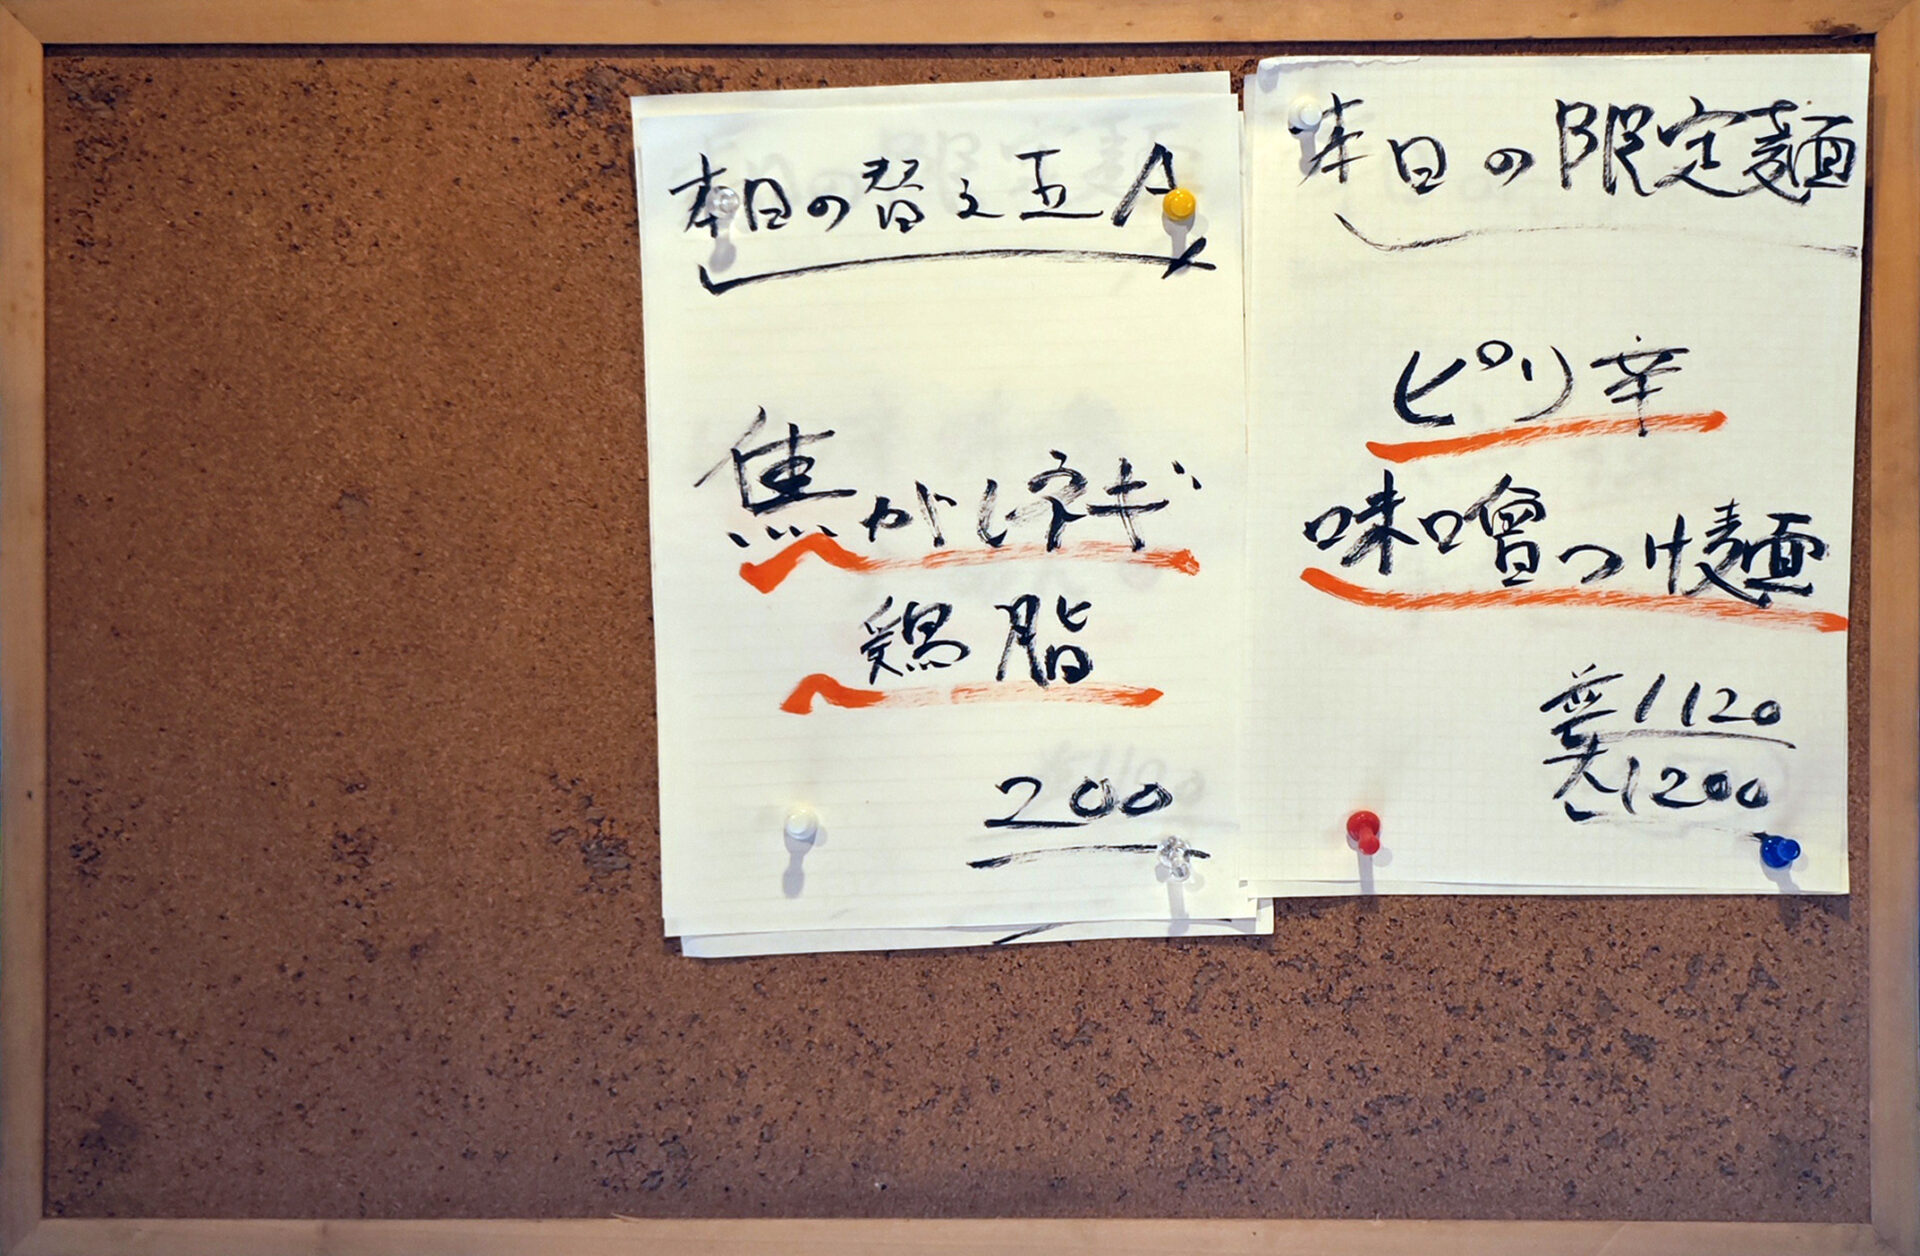 本日の替え玉A
焦がしネギ
鶏脂
200
本日の限定麺
ピリ辛
味噌つけ麺
並1120
大1200